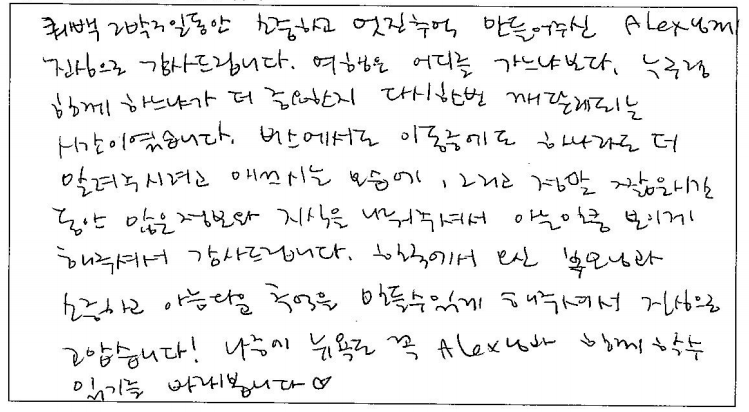 퀘백 2박3일동안 소중하고 멋진추억 만들어주신 Alex님께
진심으로 감사드립니다. 여행은 어디를 가느냐보다, 누구랑
함께 하느냐가 더 중요한지 다시한번 깨닫게되는
시간이였습니다. 버스에서도 이동중에도 하나라도 더
알려주시려고 애쓰시는 모습에, 그리고 정말 짧은시간
동안 많은정보와 지식을 나눠주셔서 아는만큼 보이게
해주셔서 감사드립니다. 한국에서 모신 부모님과
소중하고 아름다운 추억을 만들수있게 해주셔서 진심으로
고맙습니다! 나중에 뉴욕도 꼭 Alex님과 함께 할수
있기를 바래봅니다♡